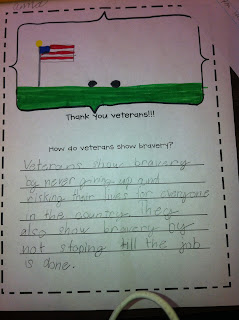 Thank you veterans!!!
How do veterans show bravery?
Veterans show bravery
by never giving up and
risking their lives for everyone
in this country they
also show bravery by
not stoping till the job
is done.